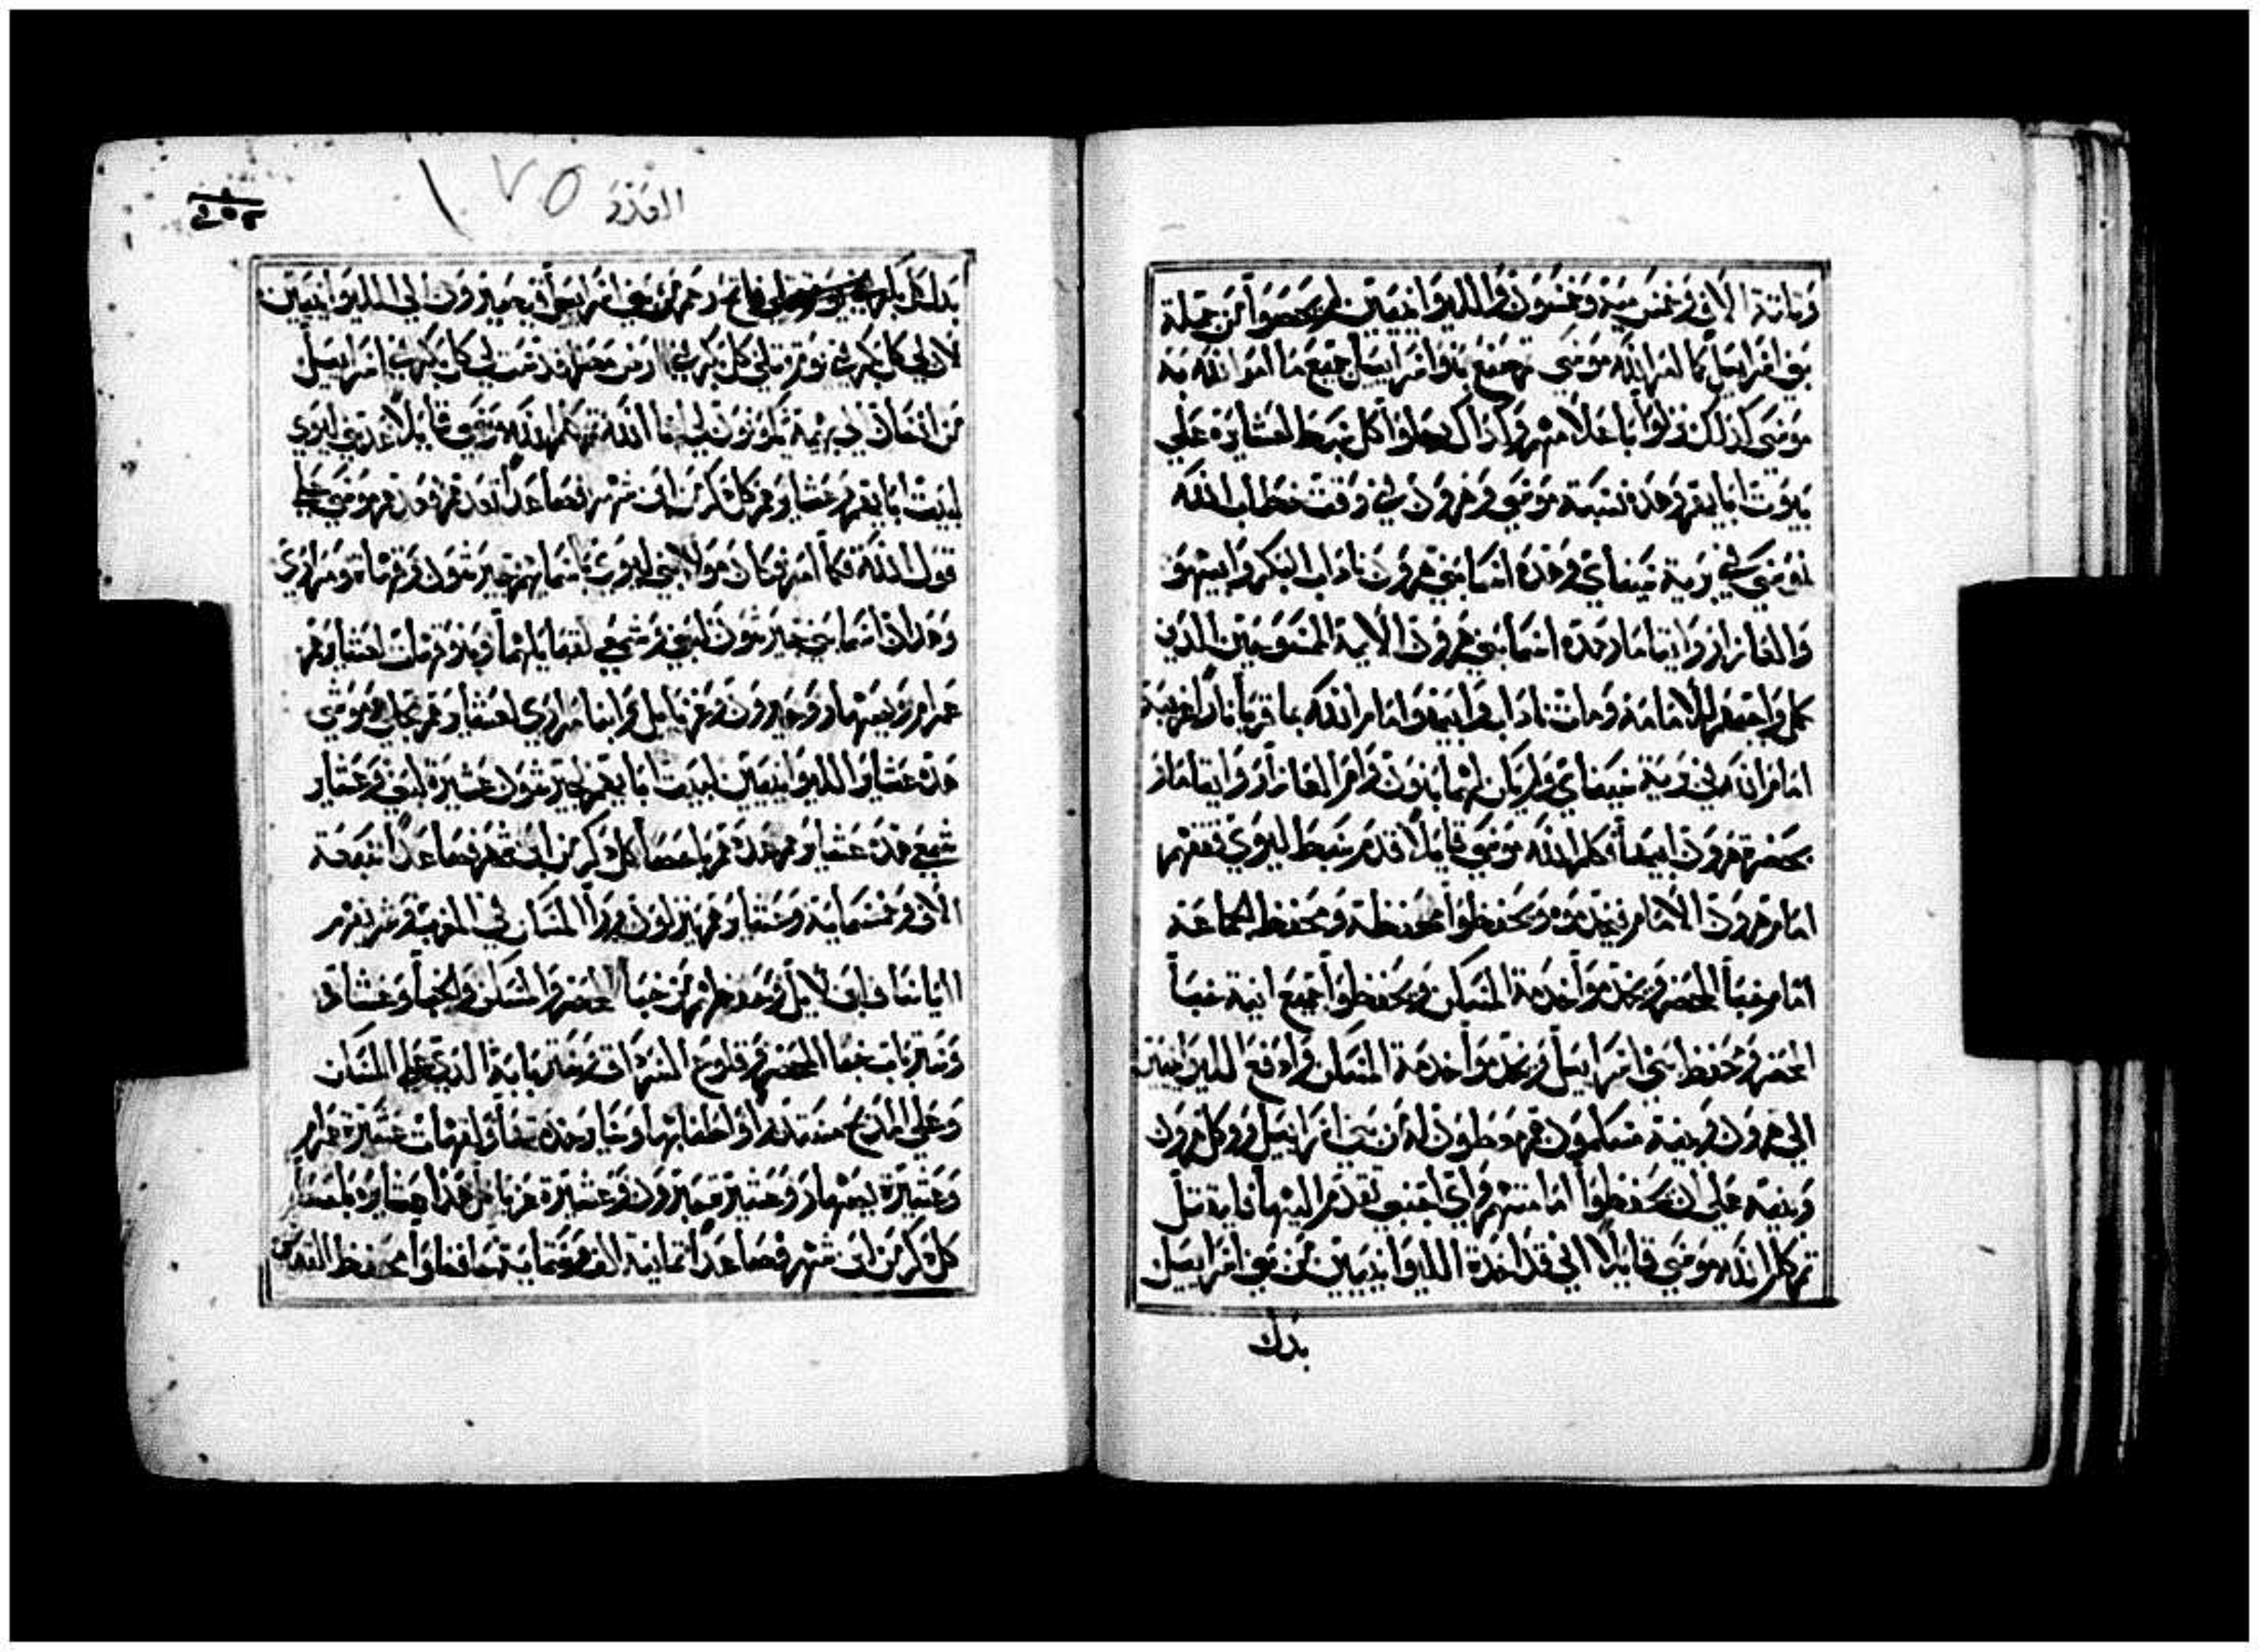 وثلثة الاف وخمس مية وخمسون والليوانيين لم يحصوا من جملة
بني اسراييل كما امر الله موسي فصنع بنوا اسراييل جميع ما امر الله به
موسي كذلك نزلوا باعلامهم وكذاك رحلوا كل سبط لعشايره علي
بيوت ابايهم وهذه نسبة موسي وهرون في وقت خطاب الله
لموسي في برية سيناي وهذه اسما بني هرون ناداب البكر وابيهو
والعازار وايتامار هذه اسما بني هرون الايمة الممسوحين الذين
كمل واجبهم للامامة ومات ناداب وابيهو امام الله بما قربا نارا غريبة
امام الله في برية سيناي ولم يكن لهما بنون وام العازار وايتامار
بحضرة هرون ابيهما فكلم الله موسي قايلا قدم سبط ليوي تقفهم
امام هرون الامام فيخدموه ويحفظوا محفظة ومحفظ الجماعة
امام خبأ المحضر ويخدموا خدمة المسكن ويحفظوا جميع انية خبأ
المحضر ومحفظ بني اسراييل ويخدموا خدمة المسكن وادفع الليوانيين
الي هرون وبنيه مسلمون هم معطون له من بني اسراييل ووكل هرون
وبنيه علي ان يحفظوا امامتهم واي اجنبي تقدم اليها فليقتل
ثم كلم الله موسي قايلا اني قد اخذة الليوانيين من بني اسراييل
بدل
العدد ١٧٥
بدل كل بكر من بني اسراييل فيصيرون لي الليوانيين
لان لي كل بكر في يوم قتلي كل بكر في ارض مصر قدست لي كل بكر في اسراييل
من انسان الي بهيمة يكونون لي انا الله ثم كلم الله موسي قايلا عد بني ليوي
لبيت ابايهم وعشايرهم كل ذكر من ابن شهر فصاعدا تعدهم فعدهم موسي علي
قول الله كما امر فكان هولا بني ليوي باسمايهم جيرشون وقهات ومراري
وهذان اسما بني جيرشون لبني وشمعي لقبايلهما وبنو قهات لعشايرهم
عمرام ويصهار وحبرون وعزيايل وابنا مراري لعشايرهم محلي وموشي
هذه عشاير الليوانيين لبيت ابايهم لجيرشون عشيرة لبني وعشاير
شمعي هذه عشايرهم عددهم باحصا كل ذكر من ابن شهر فصاعدا سبعة
الاف وخمسماية وعشايرهم ينزلون ورا المسكن في المغرب وشريفهم
الياساف ابن لايل وحفظهم من خبأ المحضر المسكن والخبا وغشاه
وستر باب خبا المحضر وقلوع السرادق وستر بابه الذي علي المسكن
وعلي المذبح مستدير واطنابها وساير خدمتها ولقهات عشيرة عمرام
وعشيرة يصهار وعشيرة حبرون وعشيرة عزيايل هذه عشايره باحصا
كل ذكر من ابن شهر فصاعدا ثمانية الف وستماية حافظوا محفظ القدس